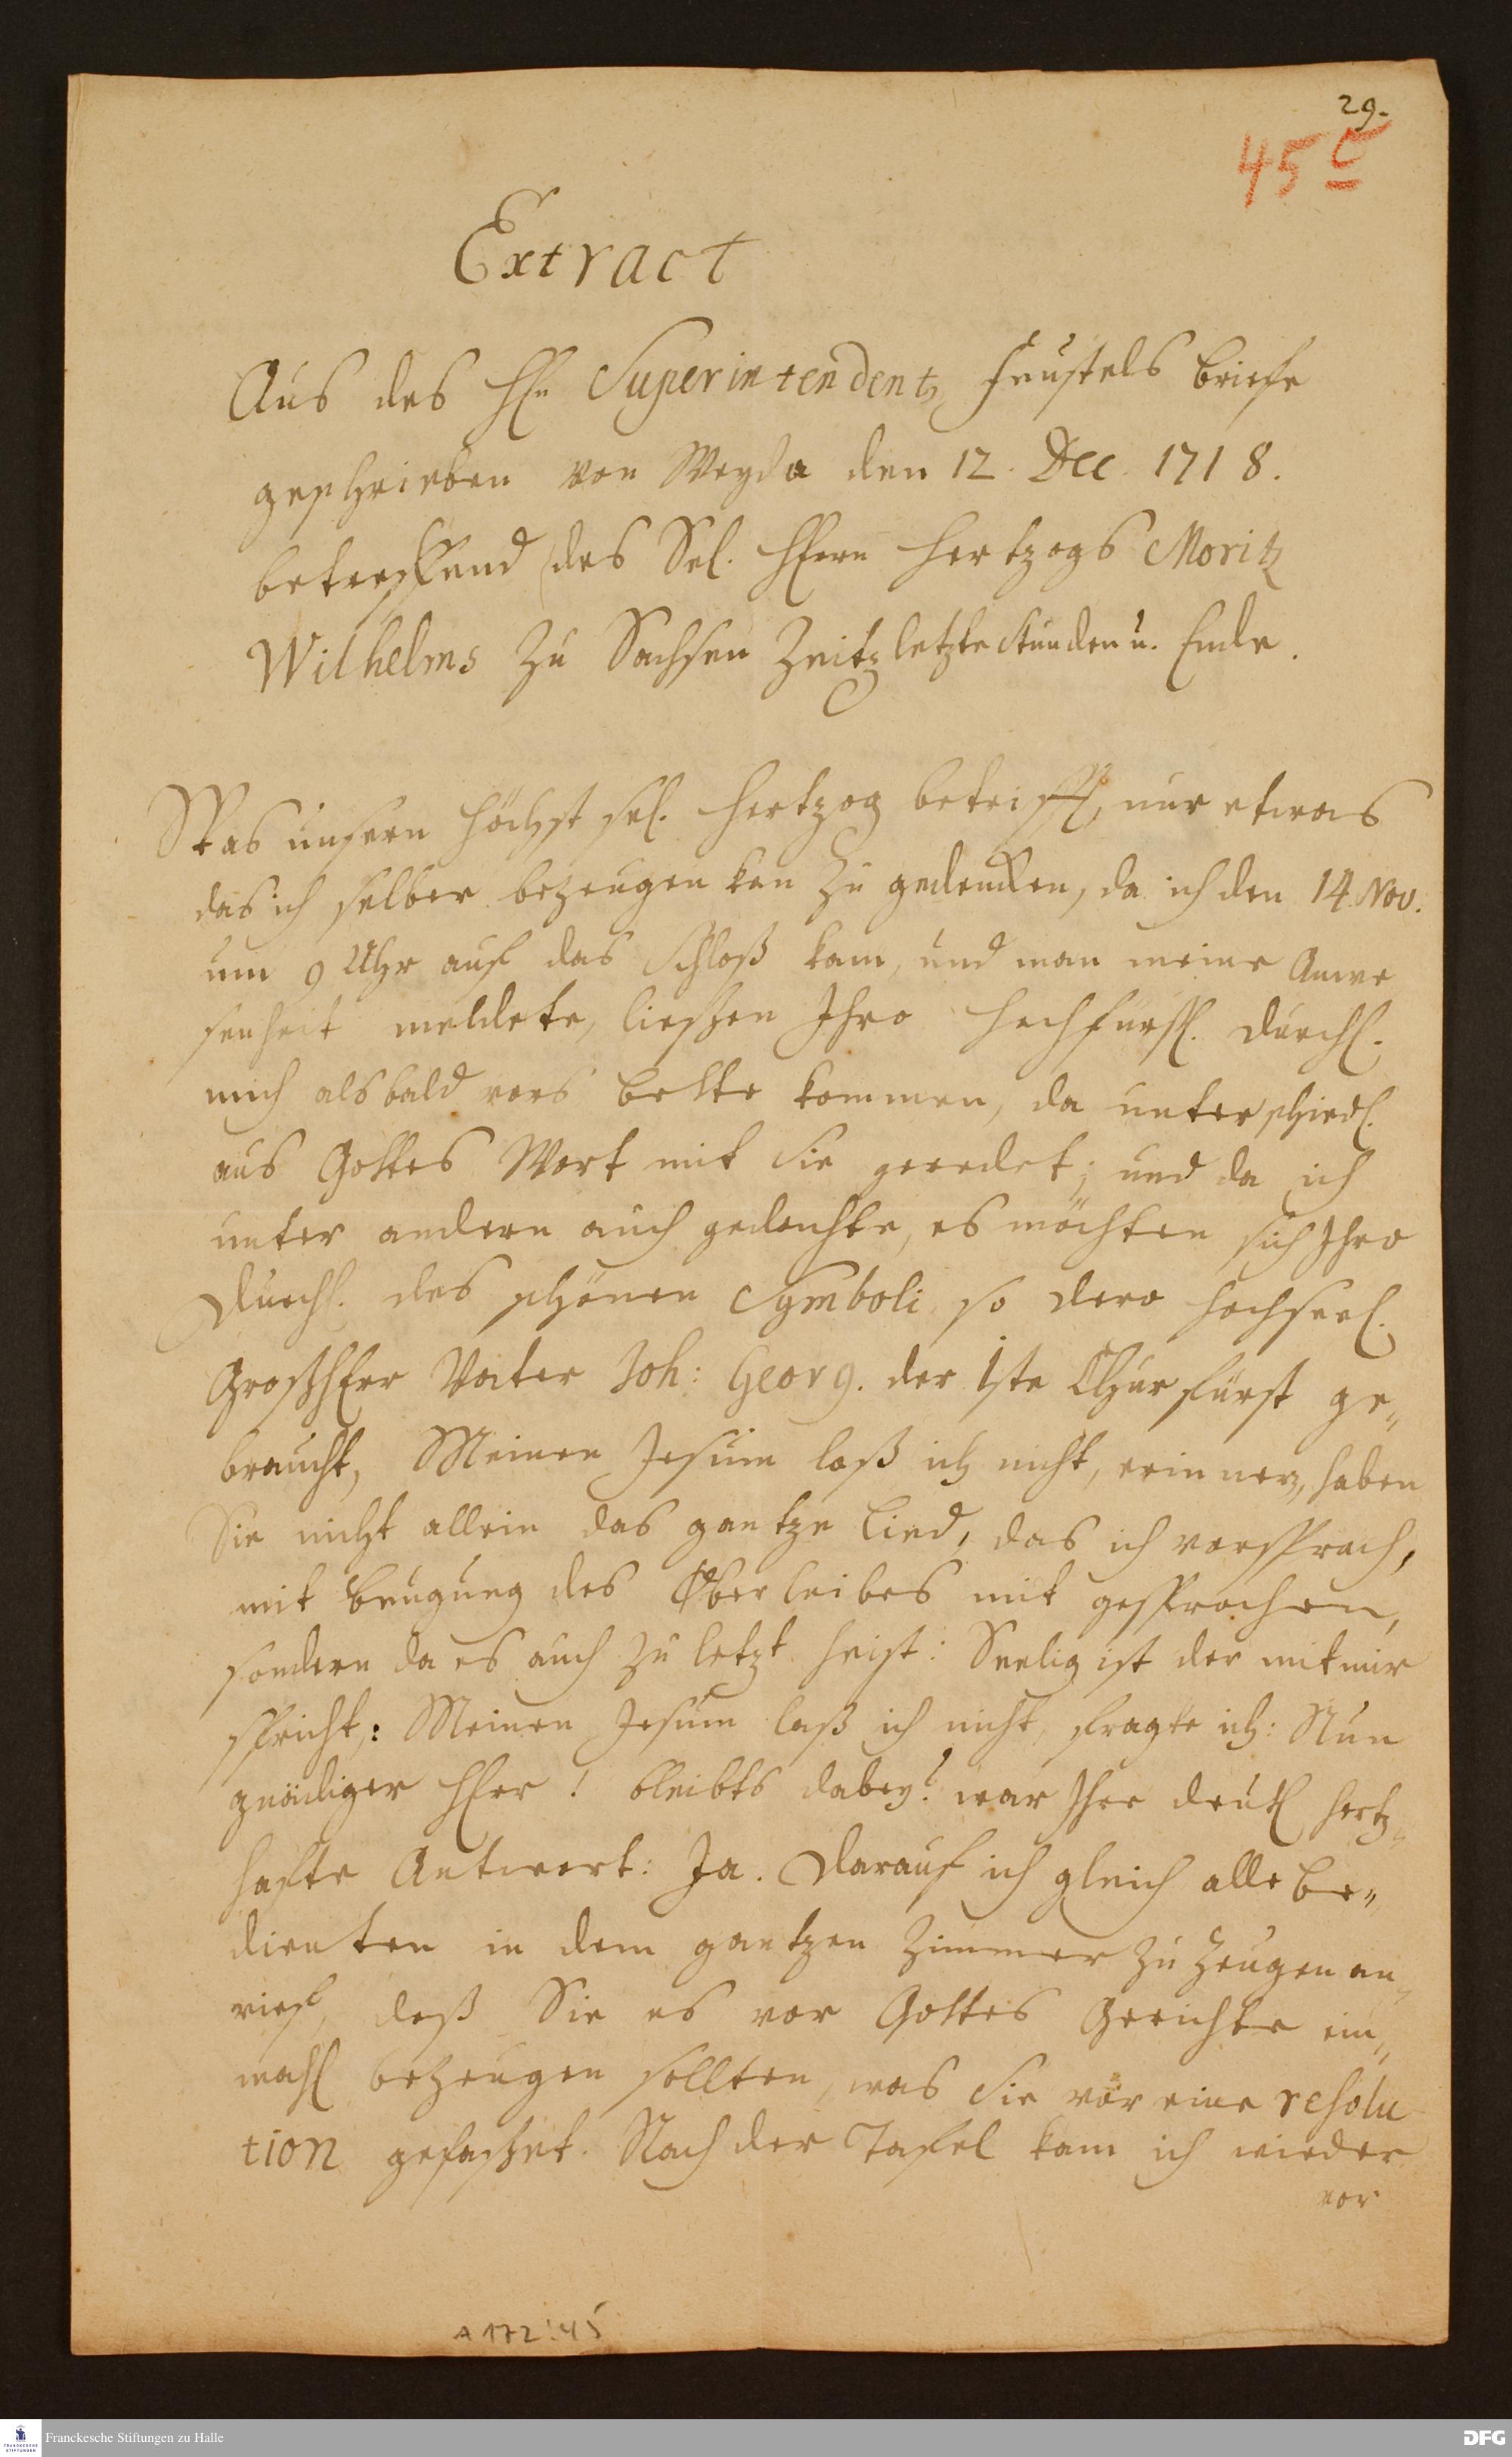 29.
45 c
Extract
Aus des Hn Superintendentz Feustels Briefe
geschrieben von Weyda den 12. Dec. 1718.
betreffend des Sel. Herrn Hertzogs Moritz
Wilhelms zu Sachsen Zeitz letzte Stunden u. Ende.
Was unsern höchst sel. Hertzog betrifft, nur etwas
das ich selber bezeugen kan zu gedencken, da ich den 14. Nov.
um 9 Uhr auf das Schloß kam, und man meine Anwe
senheit meldete, ließen Ihro Hochfürstl. Durchl.
mich alsbald vors Bette kommen, da unterschiedl.
aus Gottes Wort mit Sie geredet; und da ich
unter andern auch gedachte, es möchten sich Ihro
Durchl. des schönen Symboli, so dero Hochseel.
Großherr Vater Joh: Georg. der 1ste Churfürst ge„
braucht, Meinen Jesum laß ich nicht, erinnern, haben
Sie nicht allein das gantze Lied, das ich vorsprach,
mit Beugung des Oberleibes mit gesprochen,
sondern da es auch zu letzt heist: Seelig ist der mit mir
spricht: Meinen Jesum laß ich nicht, fragte ich: Nun
gnädiger Herr! bleibts dabey? war Ihre deutl. hertz„
hafte Antwort: Ja. Darauf ich gleich alle Be„
dienten in dem gantzen Zimmer zu Zeugen an„
rief, daß Sie es vor Gottes Gerichte ein„
mahl bezeugen sollten, was Sie vor eine resolu
tion gefaßet. Nach der Tafel kam ich wieder
vor
A 172:45
Franckesche Stiftungen zu Halle
DFG